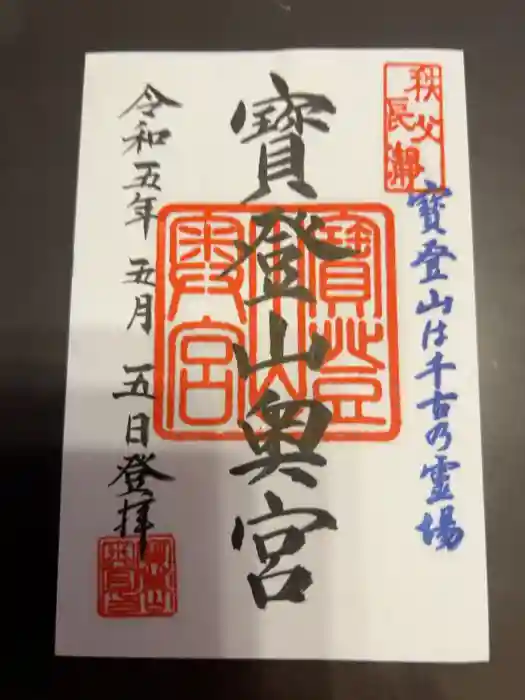 秩父
長瀞
寶登山は千古乃霊場
寶登山奥宮
寶登
山
奥宮
令和五年 五月 五日登拝